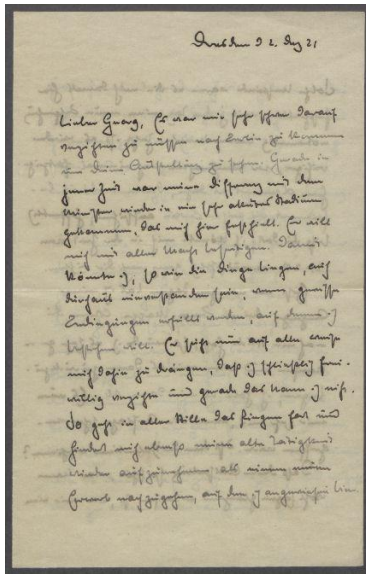 Dresden d 2. Dez 21
Lieber Georg, Es war mir sehr schwer darauf
verzichten zu müssen nach Berlin zu kommen
um Deine Ausstellung zu sehen. Gerade in
jener Zeit war meine Differenz mit dem
Ministerium wieder in ein sehr akutes Stadium
gekommen, das mich hier festhielt. Er will
mich mit aller Macht beseitigen. Damit
könnte ich, so wie die Dinge liegen, auch
durchaus einverstanden sein, wenn gewisse
Bedingungen erfüllt werden, auf denen ich
bestehen will. Er sucht nun auf alle
mich dahin zu drängen, daß ich schließlich frei-
willig verzichte und gerade das kann ich nicht.
So geht in aller Stille das Ringen fort und
hindert mich ebenso meine alte Tätigkeit
wieder aufzunehmen, als einem neuen
Erwerb nachzugehen, auf den ich angewiesen bin.